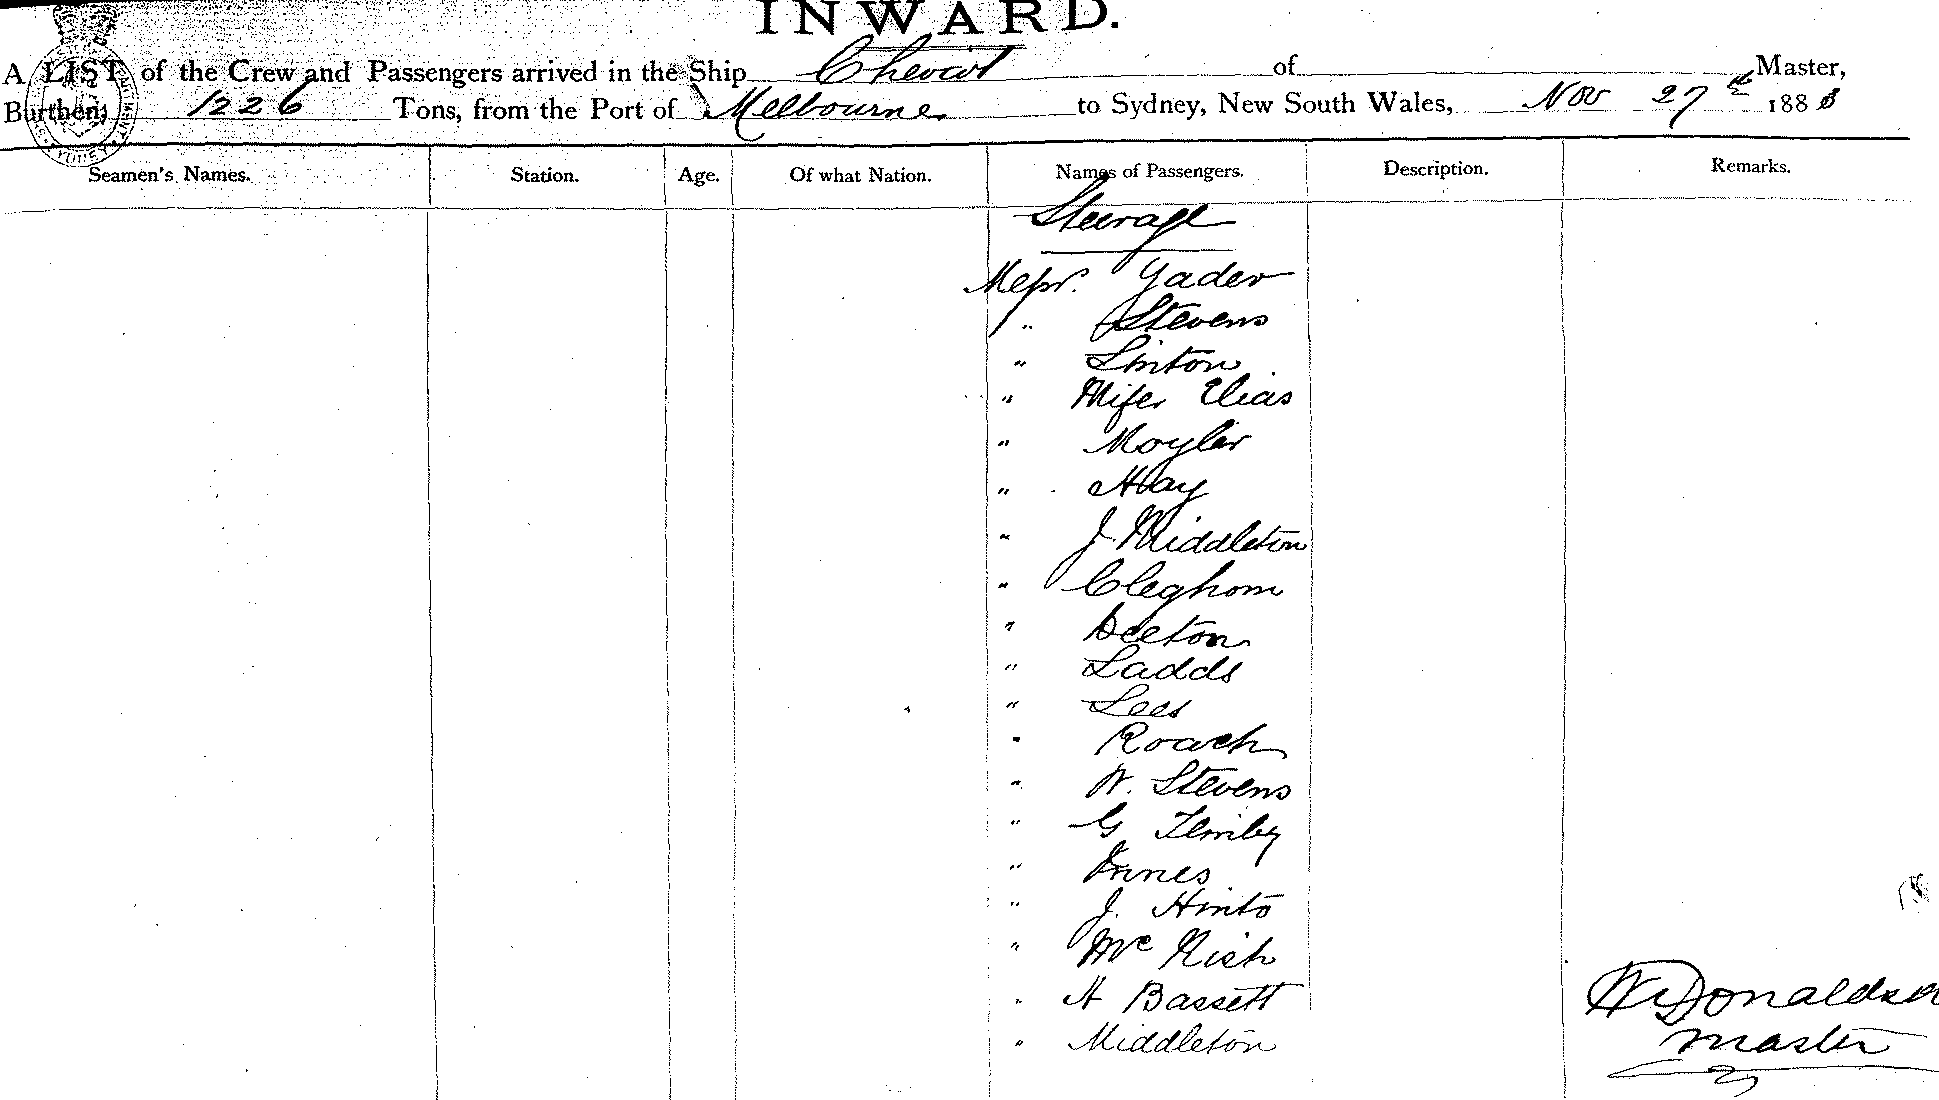 INWARD.
A LIST of the Crew and Passengers arrived in the Ship Cheviot of Master,
Burthen, 1226 Tons, from the Port of Melbourne to Sydney, New South Wales, Nov 27th 1883
Seamen's Names. Station. Age. Of what Nation. Names of Passengers. Description. Remarks.
Steerage
Messr. Yader
" Stevens
" Linton
" Elias
" Moyler
" Hay
" J. Middleton
" Cleghorn
" Deeton
" Ladds
" Lees
" Roach
" W. Stevens
" G
" Innes
" J. Hinto
" Mc
" H Bassett
" Middleton
W Donaldson
Master